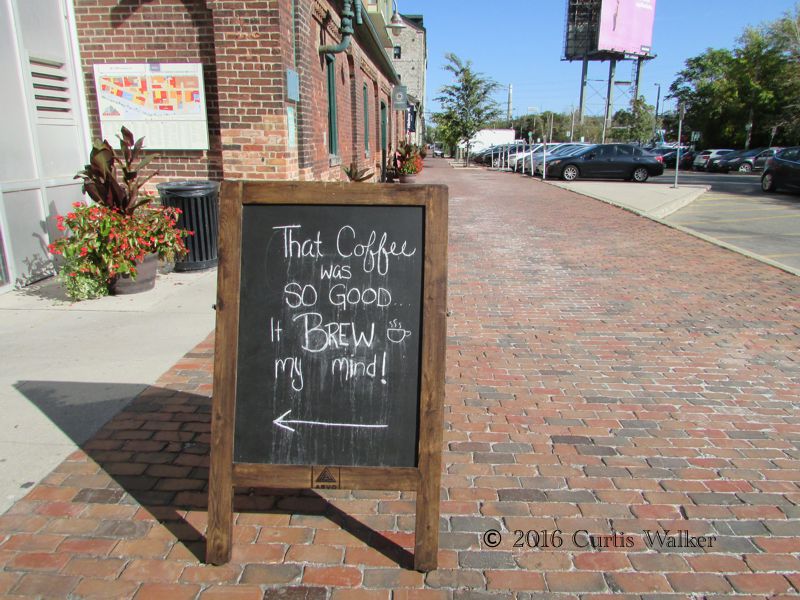 That Coffee
was
SO GOOD...
It BREW
my mind!
ARVO
© 2016 Curtis Walker